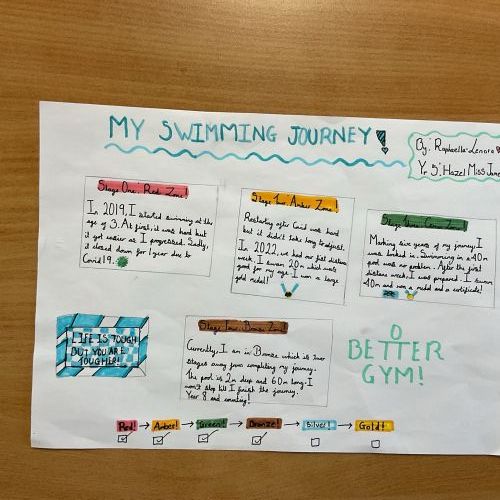 MY SWIMMING JOURNEY!
By: Raphaella-Lenora
Yr 5 Hazel Miss
Stage One: Red Zone!
In 2019, I started swimming at the
age of 3. At first, it was hard but
it got easier as I progressed. Sadly,
it closed down for 1 year due to
Covid 19.
Stage Two: Amber Zone!
Restarting after Covid was hard
but it didn't take long to adjust.
In 2022, we had our first distance
week. I swam 20m which was
good for my age. I won a large
gold medal!
Stage Three: Green Zone!
Marking six years of my journey, I
was locked in. Swimming in a 40m
pool was no problem. After the first
distance week, I was prepared. I swam
40m and won a medal and a certificate!
LIFE IS TOUGH
BUT YOU ARE
TOUGHER!
Stage Four: Bronze Zone!
Currently, I am in Bronze which is two
stages away from completing my journey.
The pool is 2m deep and 60m long. I
won't stop till I finish the journey.
Year 8 and counting!
BETTER
GYM!
Red! → Amber! → Green! → Bronze! → Silver! → Gold!